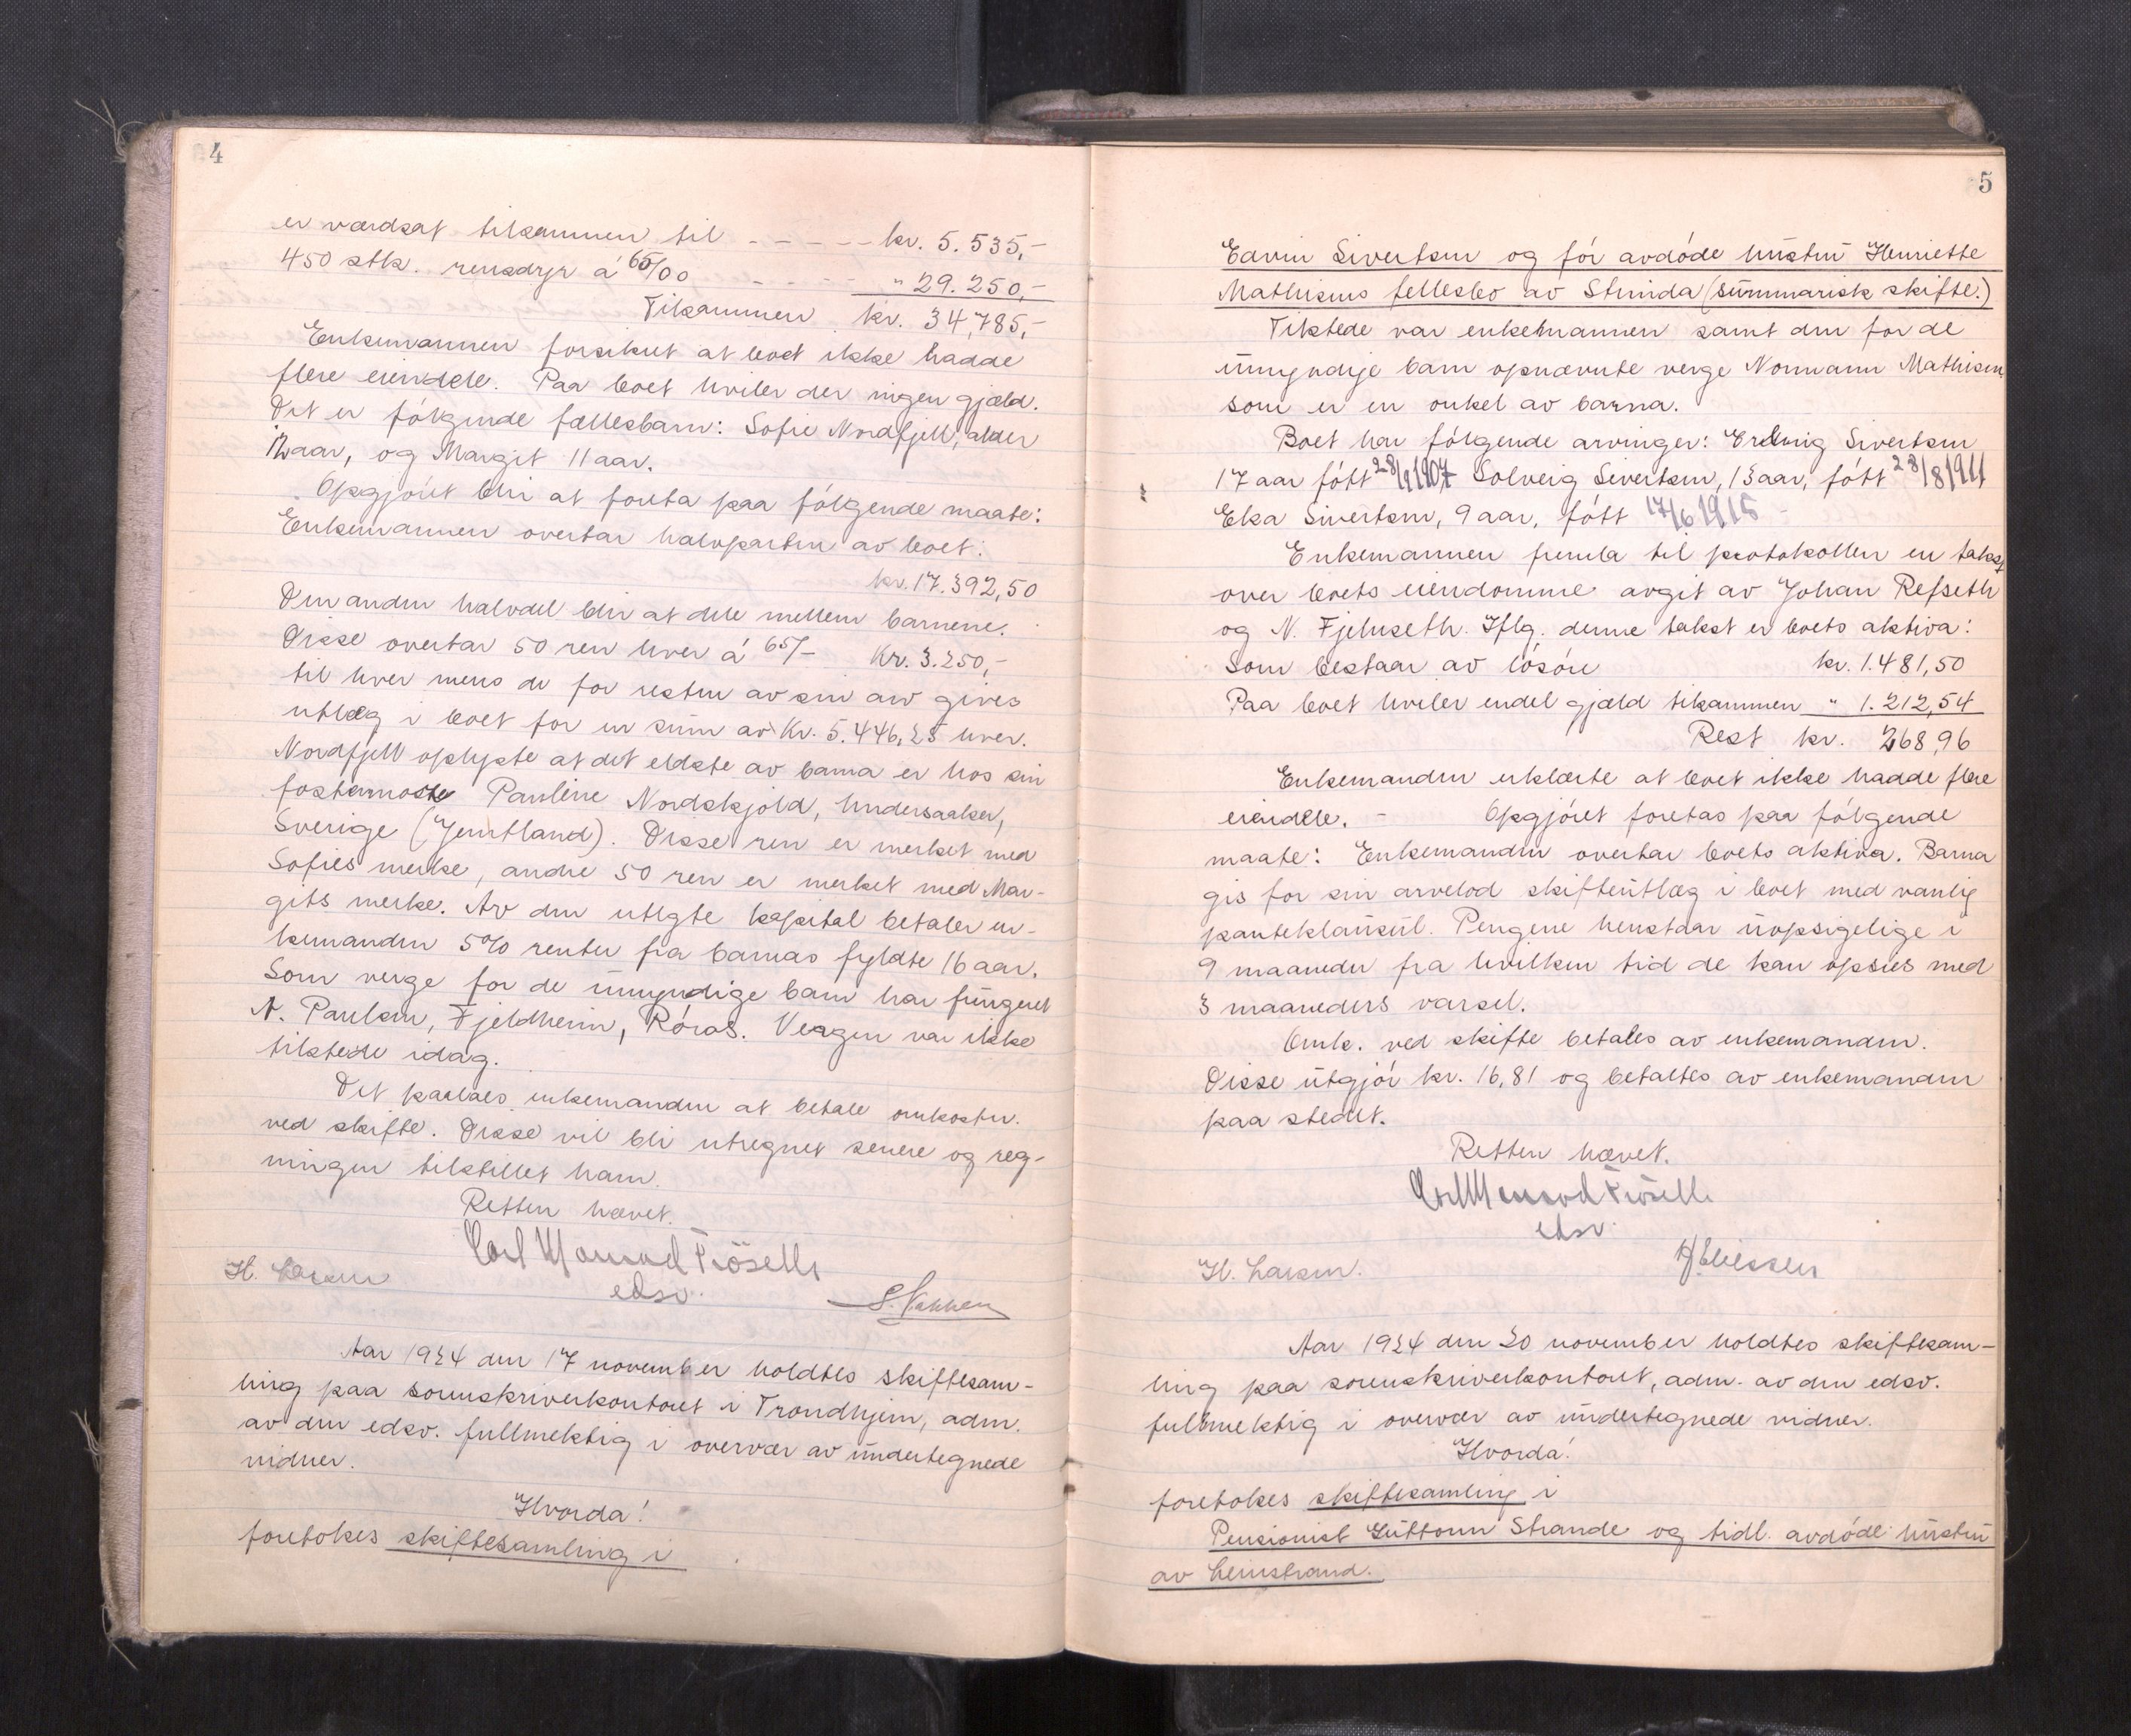 4
er værdsat tilsammen til - - - - - kr. 5.535,-
450 stk. rensdyr á 65/00 - - - - " 29.250,-
Tilsammen kr. 34,785,-
Enkemannen forsikret at boet ikke hadde
flere eiendele. Paa boet hviler der ingen gjæld.
Det er følgende fællesbarn: Sofie Nordfjell, alder
12 aar, og Margit 11 aar.
Opgjøret blir at foreta paa følgende maate:
Enkemannen overtar halvparten av boet:
kr. 17.392,50
Den anden halvdel blir at dele mellem barnene.
Disse overtar 50 ren hver á 65/- Kr. 3.250,-
til hver mens de for resten av sin arv gives
utlæg i boet for en sum av Kr. 5.446,25 hver.
Nordfjell oplyste at det eldste av barna er hos sin
fostermoster Pauline Nordskjold, Undersaaker,
Sverige (Jemtland). Disse ren er merket med
Sofies merke, andre 50 ren er merket med Mar-
gits merke. Av den utlgte kapital betaler en-
kemanden 5% renter fra barnas fyldte 16 aar.
Som verge for de umyndige barn har fungeret
N. Paulsen, Fjeldheim, Røros. Vergen var ikke
tilstede idag.
Det paalaes enkemanden at betale omkostn.
ved skifte. Disse vil bli utregnet senere og reg-
ningen tilstillet ham.
Retten hævet.
Carl Monrad Fröselth
edsv.
H. Larsen
S. Nakken
Aar 1924 den 17 november holdtes skiftesam-
ling paa sorenskriverkontoret i Trondhjem, adm.
av den edsv. fullmektig i overvær av undertegnede
vidner.
Hvorda!
foretokes skiftesamling i
5
Edvin Sivertsen og før avdøde hustru Henriette
Mathisens fellesbo av Strinda (summarisk skifte.)
Tilstede var enkemannen samt den for de
umyndige barn opnævnte verge Normann Mathisen
som er en onkel av barna.
Boet har følgende arvinger: Erling Sivertsen
17 aar født 28/9 1907 Solveig Sivertsen, 13 aar, født 28/8 1911
Elsa Sivertsen, 9 aar, født 17/6 1915
Enkemannen fremla til protokollen en takst
over boets eiendomme avgit av Johan Refseth
og N. Fjelnseth. Iflg. denne takst er boets aktiva:
Som bestaar av løsøre kr. 1.481,50
Paa boet hviler endel gjæld tilsammen " 1.212,54
Rest kr. 268,96
Enkemanden erklærte at boet ikke hadde flere
eiendele. - Opgjøret foretas paa følgende
maate: Enkemanden overtar boets aktiva. Barna
gis for sin arvelod skifteutlæg i boet med vanlig
panteklausul. Pengene henstaar uopsigelige i
9 maaneder fra hvilken tid de kan opsies med
3 maaneders varsel.
Omk. ved skifte betales av enkemanden.
Disse utgjør kr. 16,81 og betaltes av enkemanden
paa stedet.
Retten hævet.
Carl Monrad Fröselth
edsv.
H. Larsen.
Eliessen
Aar 1924 den 20 november holdtes skiftesam-
ling paa sorenskriverkontoret, adm. av den edsv.
fullmektig i overvær av undertegnede vidner.
Hvorda!
foretokes skiftesamling i
Pensionist Guttorm Strande og tidl. avdøde hustru
av Leinstrand.